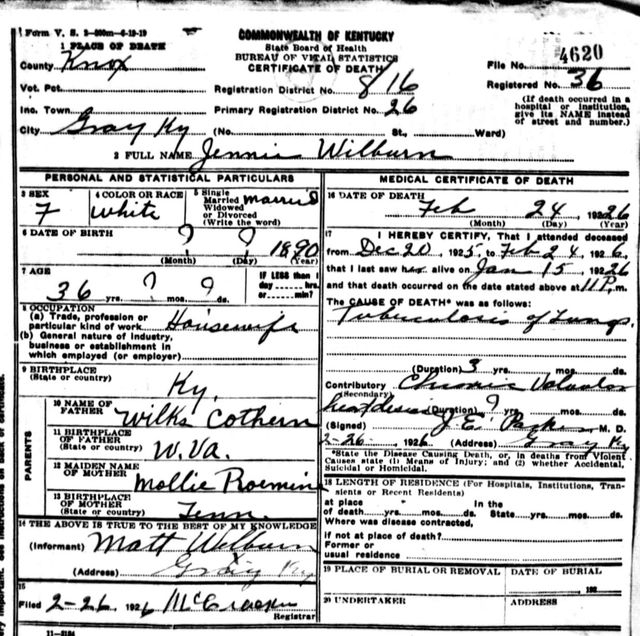 Form V. S. 2-200m-6-19-19
COMMONWEALTH OF KENTUCKY
State Board of Health
BUREAU OF VITAL STATISTICS
CERTIFICATE OF DEATH
1 PLACE OF DEATH
County Knox
File No. 4620
Registered No. 36
Vot. Pct.
Registration District No. 816
Inc. Town
Primary Registration District No. 26
(If death occurred in a hospital or institution, give its NAME instead of street and number.)
City Gray Ky (No. St., Ward)
2 FULL NAME Jennie Wilburn
PERSONAL AND STATISTICAL PARTICULARS
3 SEX
F
4 COLOR OR RACE
white
5 Single
Married
Widowed
or Divorced
(Write the word)
Married
6 DATE OF BIRTH
? ? 1890
(Month) (Day) (Year)
7 AGE
36 yrs. ? mos. ? ds.
IF LESS than 1
day hrs.
or min.?
8 OCCUPATION
(a) Trade, profession or
particular kind of work Housewife
(b) General nature of industry,
business or establishment in
which employed (or employer)
9 BIRTHPLACE
(State or country)
Ky.
PARENTS
10 NAME OF
FATHER
Wilks Cothern
11 BIRTHPLACE
OF FATHER
(State or country)
W. Va.
12 MAIDEN NAME
OF MOTHER
Mollie
13 BIRTHPLACE
OF MOTHER
(State or country)
Tenn.
14 THE ABOVE IS TRUE TO THE BEST OF MY KNOWLEDGE
(Informant) Matt Wilburn
(Address) Gray Ky
15
Filed 2-26, 1926
Registrar
11-3184
MEDICAL CERTIFICATE OF DEATH
16 DATE OF DEATH
Feb 24, 1926
(Month) (Day) (Year)
17 I HEREBY CERTIFY, That I attended deceased
from Dec 20, 1925, to Feb 24, 1926,
that I last saw her alive on Jan 15, 1926
and that death occurred on the date stated above at 11 P. m.
The CAUSE OF DEATH* was as follows:
Tuberculosis of Lungs.
(Duration) 3 yrs. mos. ds.
Contributory Chronic Valvular
(Secondary)
heart disease (Duration) ? yrs. mos. ds.
(Signed) J. E. M. D.
2-26-, 1926 (Address) Gray Ky
*State the Disease Causing Death, or, in deaths from Violent
Causes state (1) Means of Injury; and (2) whether Accidental,
Suicidal or Homicidal.
18 LENGTH OF RESIDENCE (For Hospitals, Institutions, Tran-
sients or Recent Residents)
at place In the
of death yrs. mos. ds. State yrs. mos. ds.
Where was disease contracted,
if not at place of death?
Former or
usual residence
19 PLACE OF BURIAL OR REMOVAL
DATE OF BURIAL
192
20 UNDERTAKER
ADDRESS